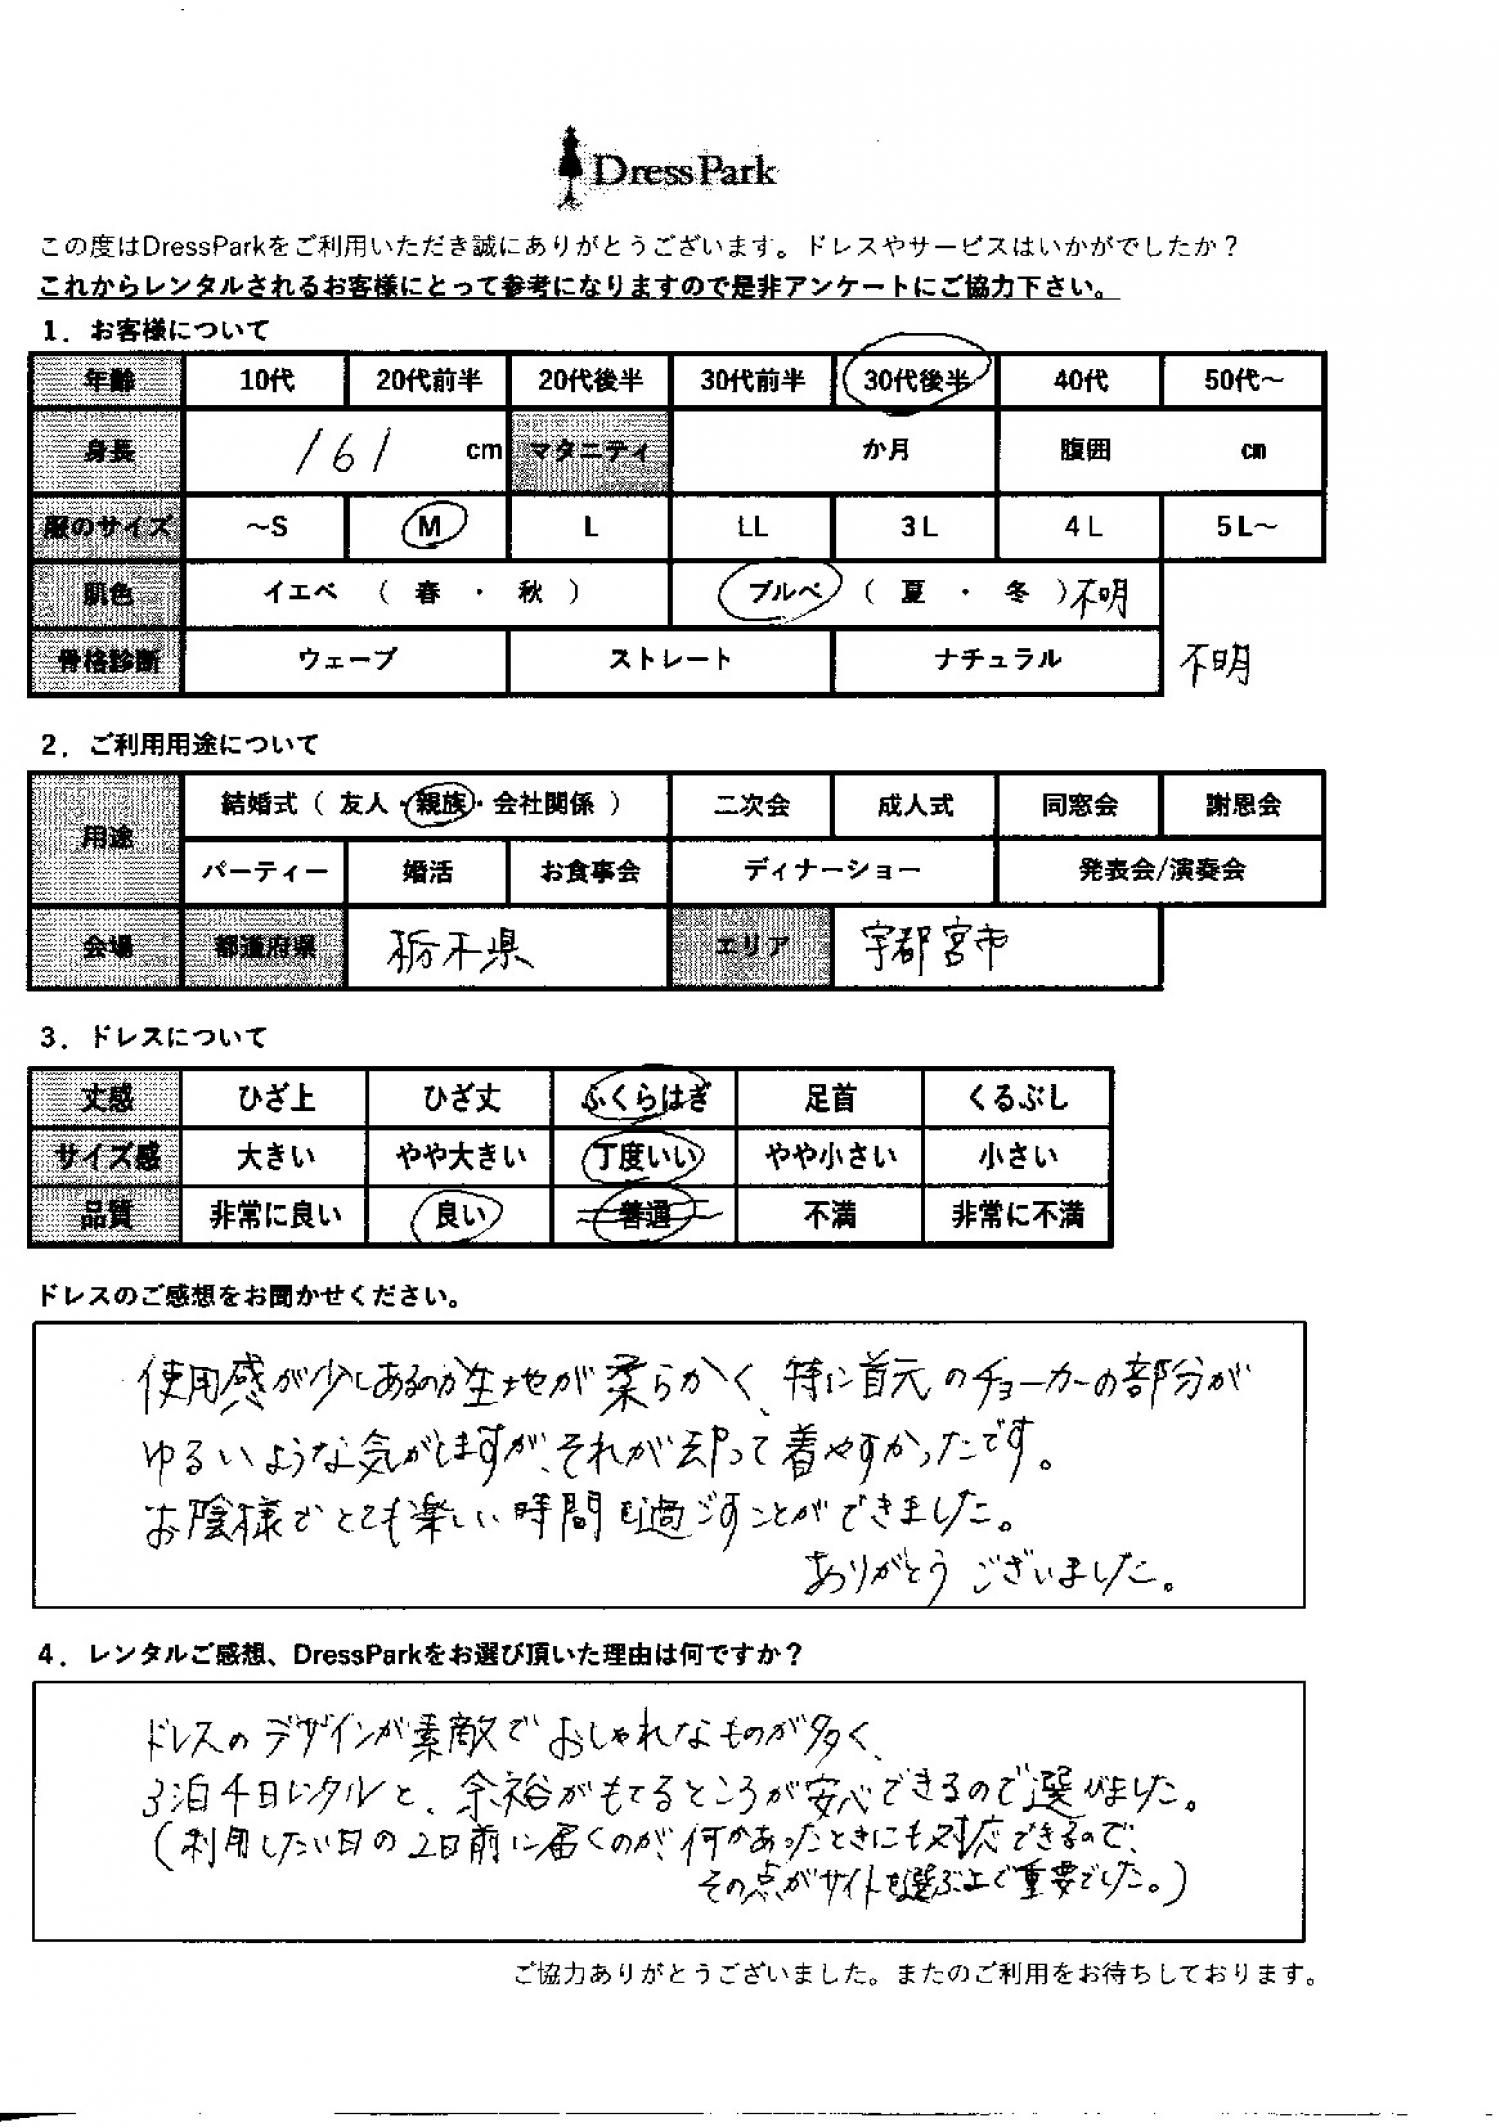 DressPark
この度はDressParkをご利用いただき誠にありがとうございます。ドレスやサービスはいかがでしたか？
これからレンタルされるお客様にとって参考になりますので是非アンケートにご協力下さい。
1．お客様について
年齢 10代 20代前半 20代後半 30代前半 30代後半 40代 50代～
身長 161 cm マタニティ か月 腹囲 cm
服のサイズ ～S M L LL 3L 4L 5L～
肌色 イエベ （ 春 ・ 秋 ） ブルベ （ 夏 ・ 冬 ）不明
骨格診断 ウェーブ ストレート ナチュラル 不明
2．ご利用用途について
用途 結婚式（ 友人・親族・会社関係 ） 二次会 成人式 同窓会 謝恩会
パーティー 婚活 お食事会 ディナーショー 発表会/演奏会
会場 都道府県 栃木県 エリア 宇都宮市
3．ドレスについて
丈感 ひざ上 ひざ丈 ふくらはぎ 足首 くるぶし
サイズ感 大きい やや大きい 丁度いい やや小さい 小さい
品質 非常に良い 良い 普通 不満 非常に不満
ドレスのご感想をお聞かせください。
使用感が少しあるのか生地が柔らかく、特に首元のチョーカーの部分が
ゆるいような気がしますが、それが却って着やすかったです。
お陰様でとても楽しい時間を過ごすことができました。
ありがとうございました。
4．レンタルご感想、DressParkをお選び頂いた理由は何ですか？
ドレスのデザインが素敵でおしゃれなものが多く、
3泊4日レンタルと、余裕がもてるところが安心できるので選びました。
（利用したい日の2日前に届くのが、何かあったときにも対応できるので、
その点がサイトを選ぶ上で重要でした。）
ご協力ありがとうございました。またのご利用をお待ちしております。